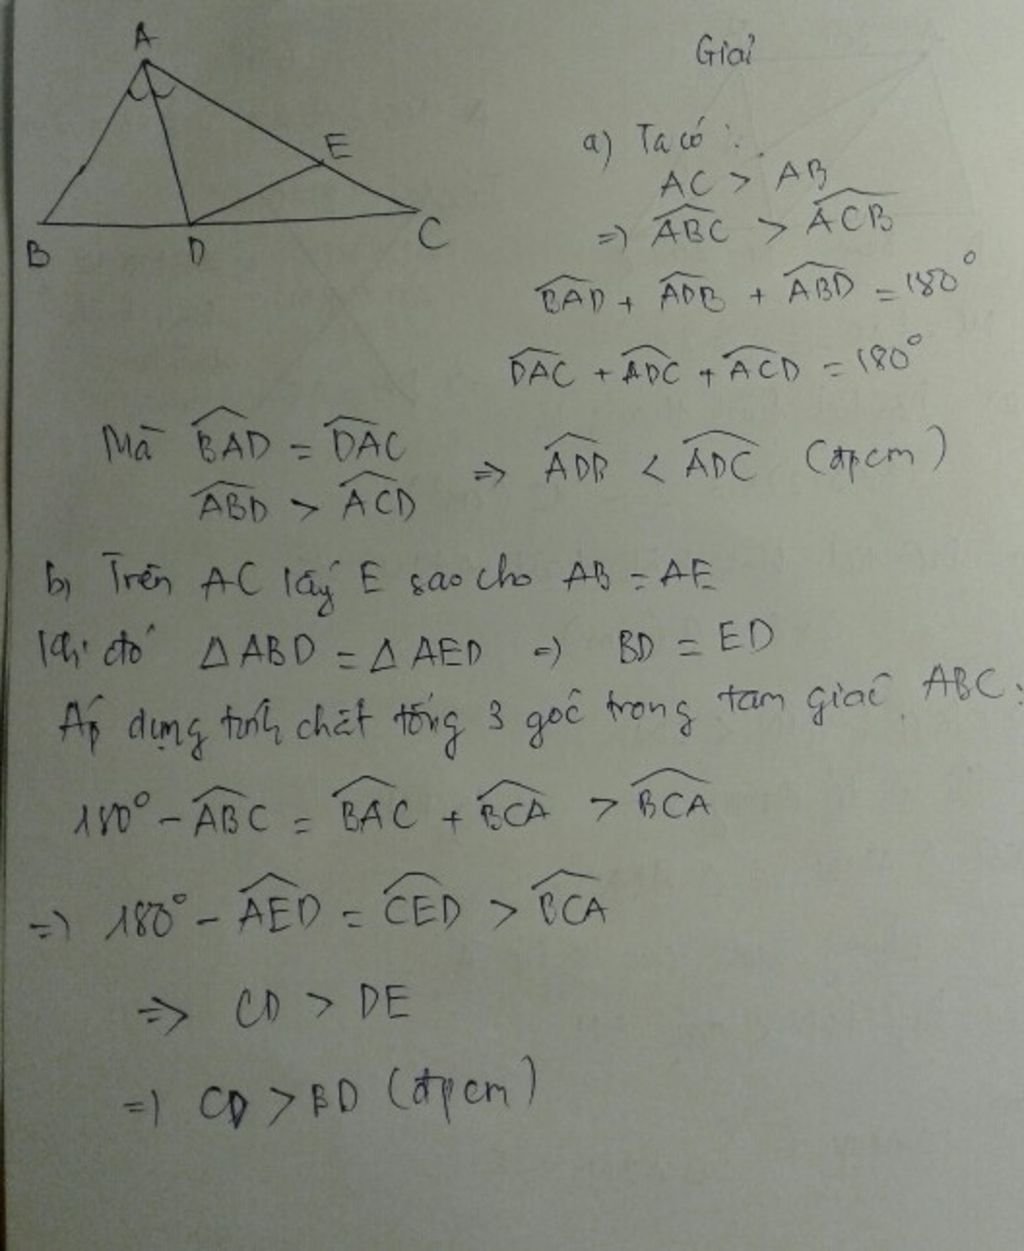 A
E
B
D
C
Giải
a) Ta có :
AC > AB
=> \widehat{ABC} > \widehat{ACB}
\widehat{BAD} + \widehat{ADB} + \widehat{ABD} = 180°
\widehat{DAC} + \widehat{ADC} + \widehat{ACD} = 180°
Mà \widehat{BAD} = \widehat{DAC}
\widehat{ABD} > \widehat{ACD}
=> \widehat{ADB} < \widehat{ADC} (đpcm)
b) Trên AC lấy E sao cho AB = AE
Khi đó Δ ABD = Δ AED => BD = ED
Áp dụng tính chất tổng 3 góc trong tam giác ABC :
180° - \widehat{ABC} = \widehat{BAC} + \widehat{BCA} > \widehat{BCA}
=> 180° - \widehat{AED} = \widehat{CED} > \widehat{BCA}
=> CD > DE
=> CD > BD (đpcm)